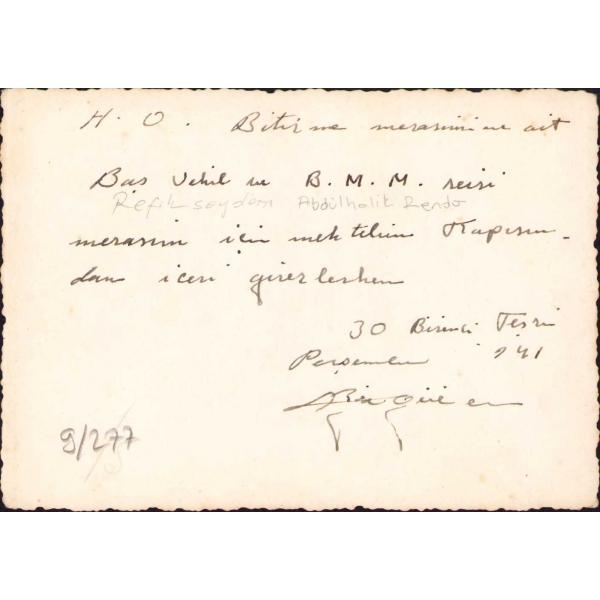 H. O. Bitirme merasimine ait
Baş Vekil ve B. M. M. reisi
Refik saydam Abdülhalik Renda
merasim için mektebin Kapısın-
dan içeri girerlerken
30 Birinci Teşrin
Perşembe 941
9/277